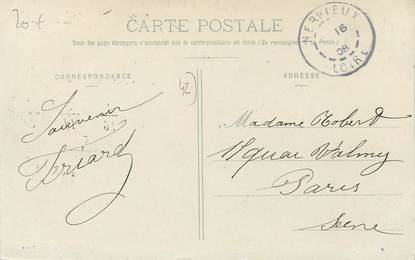 20 €
CARTE POSTALE
Tous les pays étrangers n'acceptent pas la correspondance au recto (Se renseigner à la Poste)
NERVIEUX
16
08
LOIRE
CORRESPONDANCE
42
ADRESSE
Souvenir
Friard
Madame Robert
quai Valmy
Paris
Seine